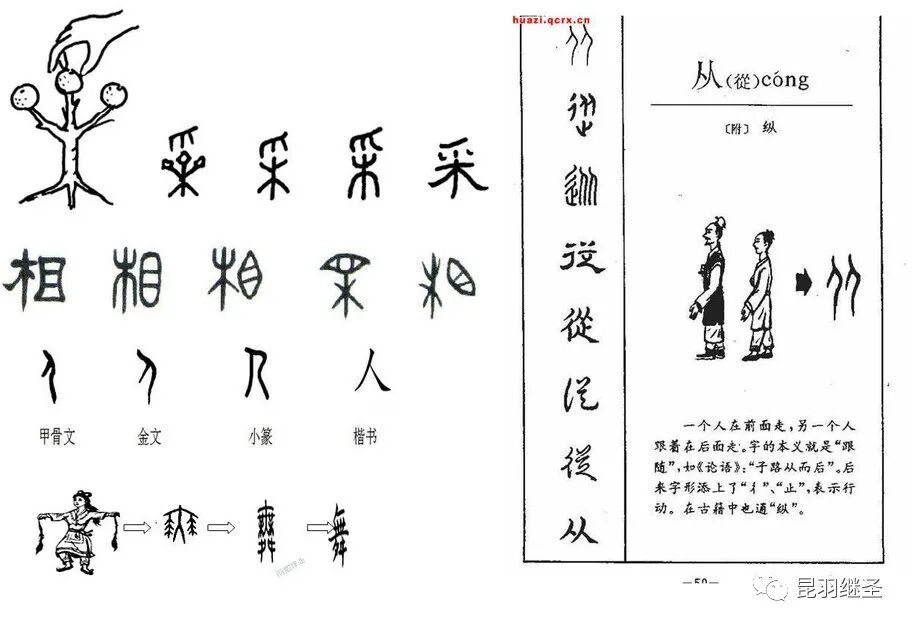 huazi.qcrx.cn
采
相
人
甲骨文 金文 小篆 楷书
舞
从(從)cóng
〔附〕 纵
從
从
一个人在前面走,另一个人
跟着在后面走。字的本义就是“跟
随”,如《论语》:“子路从而后”。后
来字形添上了“彳”、“止”,表示行
动。在古籍中也通“纵”。
—59—
昆羽继圣